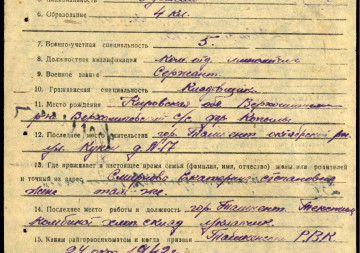 6. Образование 4 кл.
7. Военно-учетная специальность 5.
8. Должностная квалификация Ком. отд.
9. Военное звание Сержант.
10. Гражданская специальность Кладовщик
11. Место рождения Кировская обл
р-н с/с дер
12. Последнее место жительства гор. Ташкент Октябрьский р-н
ул. д. №17
13. Где проживает в настоящее время семья (фамилия, имя, отчество) жены или родителей
и точный их адрес Смирнова Екатерина Степановна
жена там-же.
14. Последнее место работы и должность гор. Ташкент. Текстиль
комбинат склад
15. Каким райгорвоенкоматом и когда призван Ташкент РВК
24 окт 1942 г.